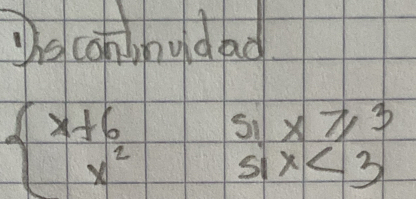 Discontinuidad
{ x+6 si x ≥ 3
x² si x < 3